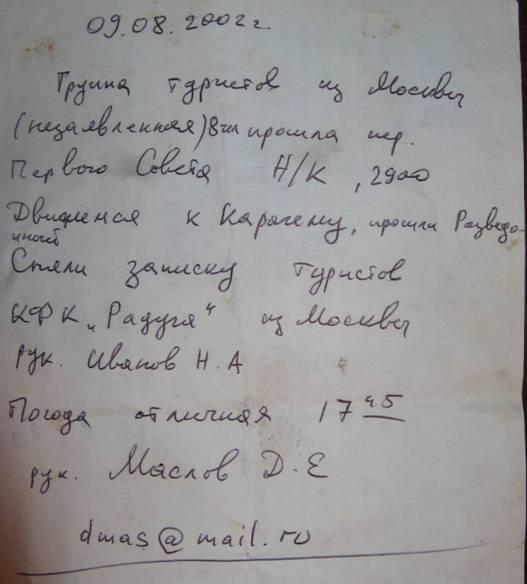 09.08.2002г.
Группа туристов из Москвы
(незаявленная) 8чел прошла пер.
Первого Совета Н/К, 2900
Движемся к Карагему, прошли Разведо-
чный
Сняли записку туристов
КФК „Радуга“ из Москвы
рук. Иванов Н.А
Погода отличная 17 45
рук. Маслов Д.Е
dmas@mail.ru